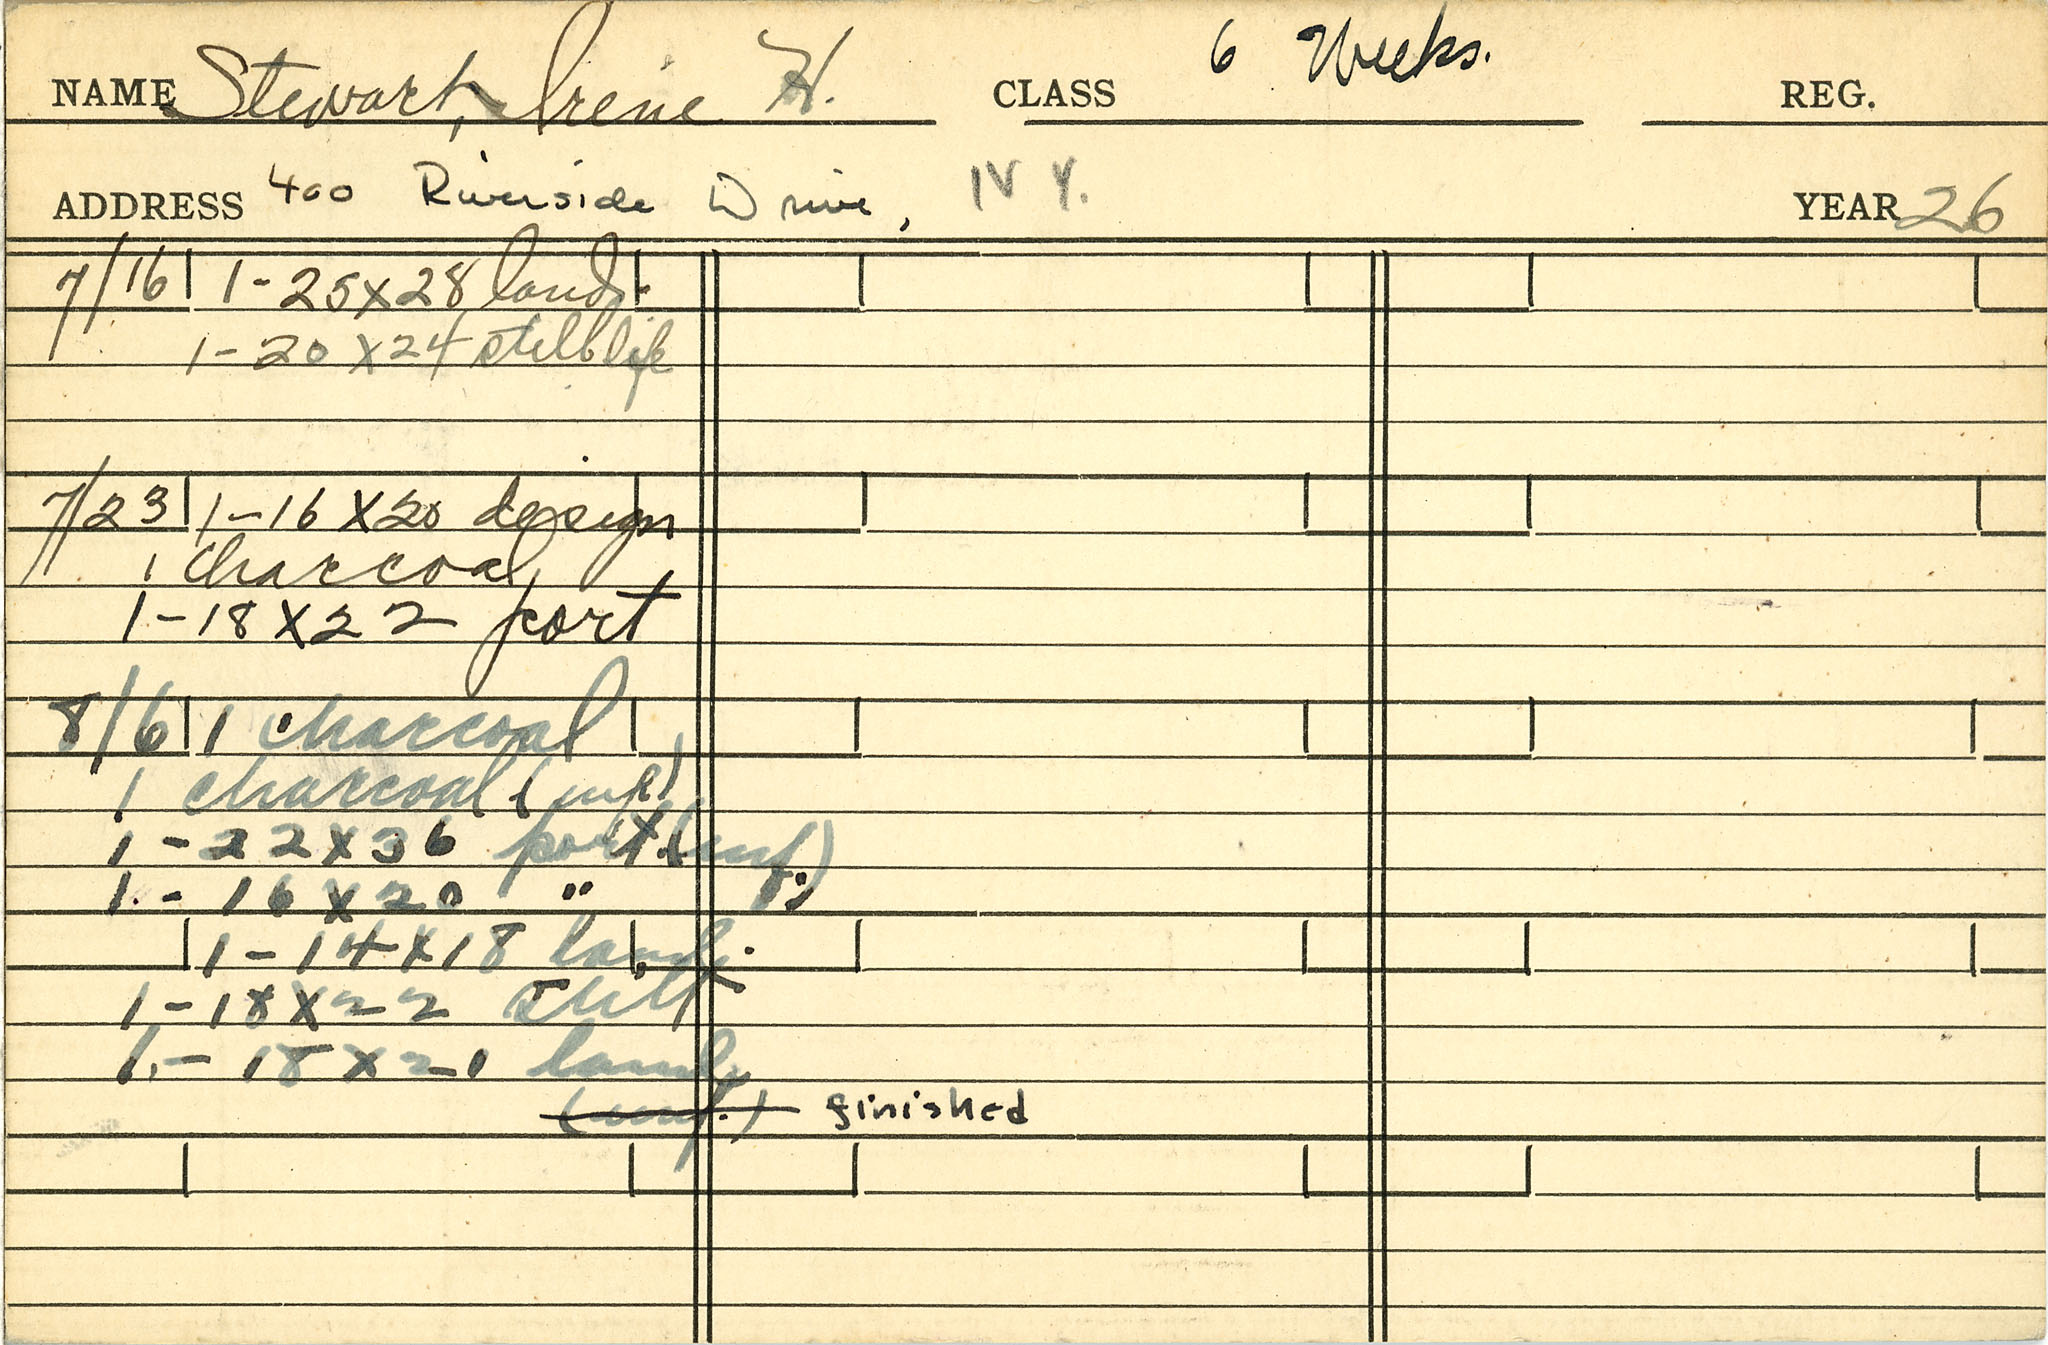 NAME Stewart, Irene H. CLASS 6 Weeks. REG.
ADDRESS 400 Riverside Drive, N Y. YEAR 26
7/16 1-25x28 land.
1-20x24 still life
7/23 1-16x20 design
1 charcoal
1-18x22 port
8/6 1 charcoal
1 charcoal (unf)
1-22x36 port (unf)
1-16x20 "
1-14x18 land.
1-18x22 still
1-18x21 land.
(unf.) finished